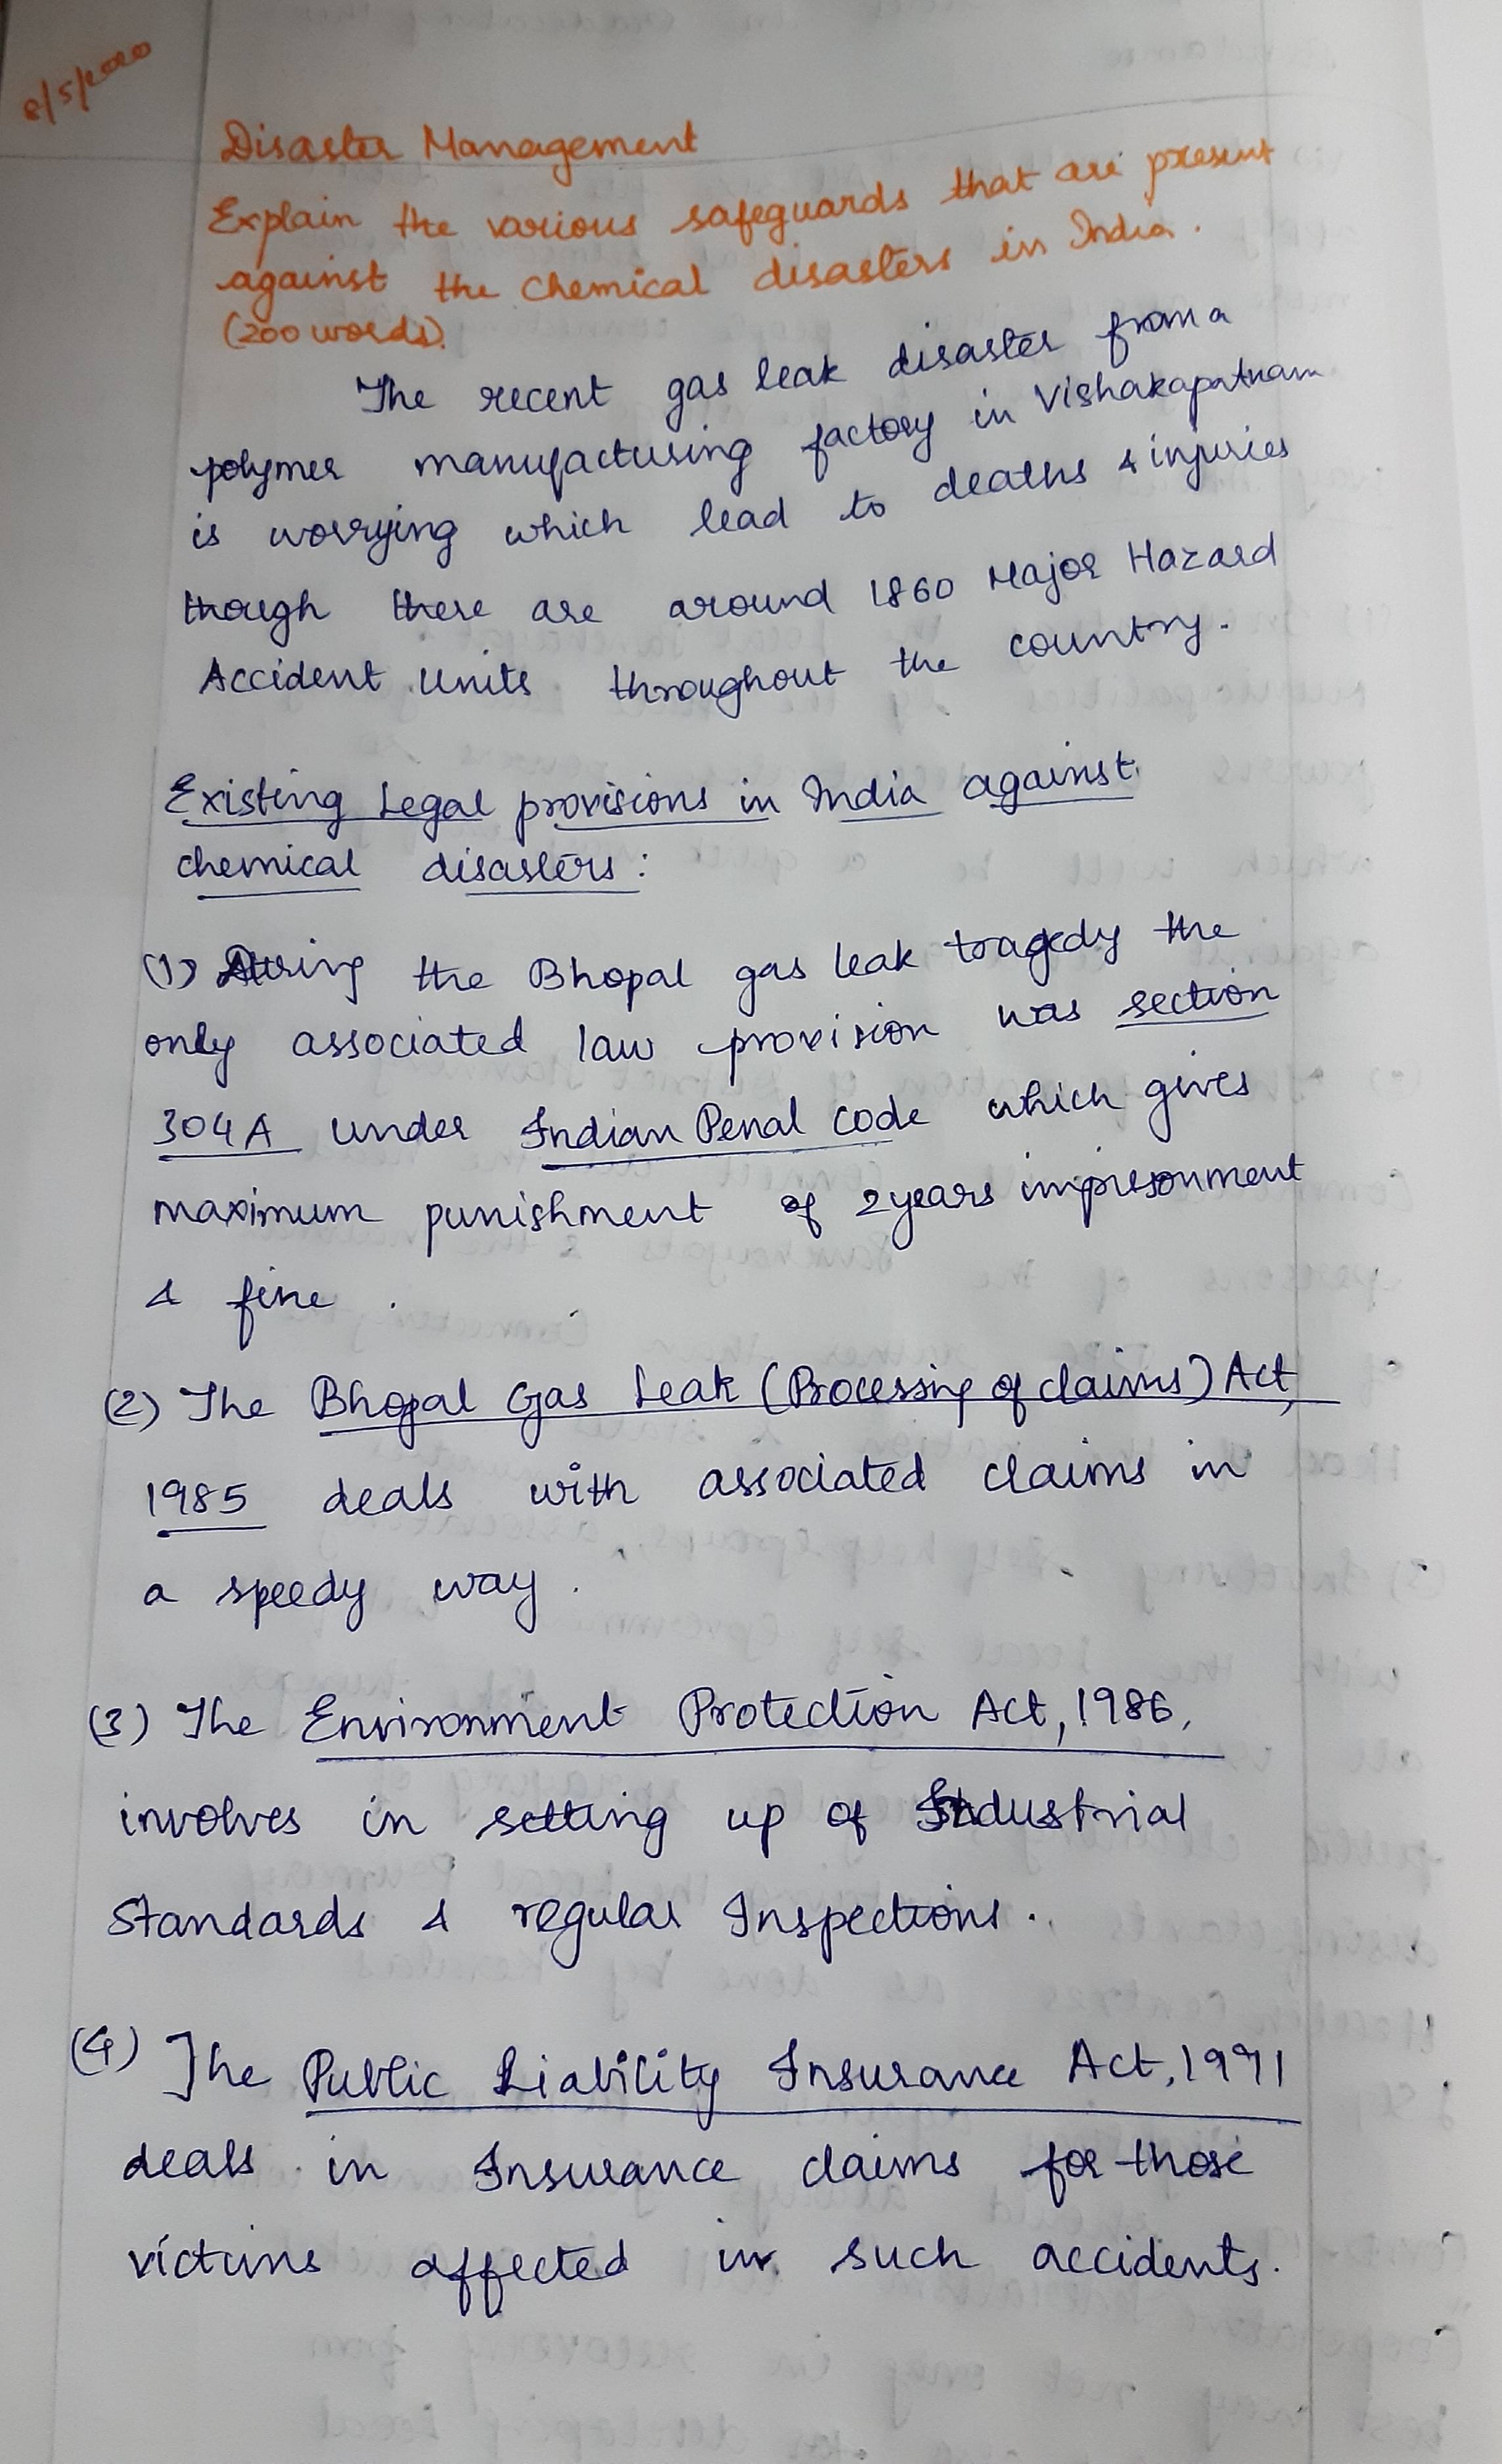 8/5/2020
Disaster Management
Explain the various safeguards that are present
against the Chemical disasters in India.
(200 words).
The recent gas leak disaster from a
polymer manufacturing factory in Vishakapatnam
is worrying which lead to deaths & injuries
though there are around 1860 Major Hazard
Accident Units throughout the country.
Existing Legal provisions in India against
chemical disasters:
(1) During the Bhopal gas leak tragedy the
only associated law provision was section
304A under Indian Penal Code which gives
maximum punishment of 2 years imprisonment
& fine.
(2) The Bhopal Gas Leak (Processing of claims) Act,
1985 deals with associated claims in
a speedy way.
(3) The Environment Protection Act, 1986,
involves in setting up of Industrial
Standards & regular Inspections.
(4) The Public Liability Insurance Act, 1991
deals in Insurance claims for those
victims affected in such accidents.